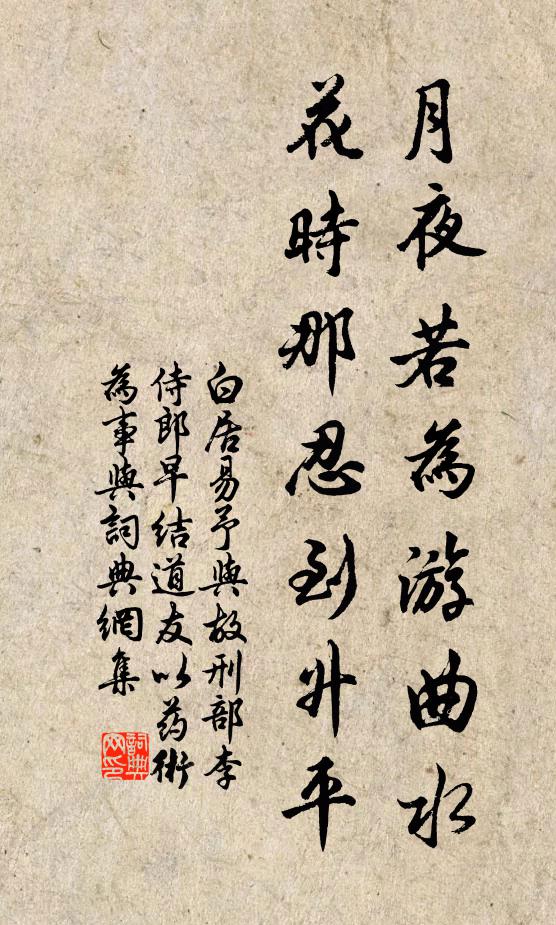 月夜若為游曲水
花時那忍到升平
白居易予與故刑部李
侍郎早結道友以药術
為事與詞典網集
詞典網印